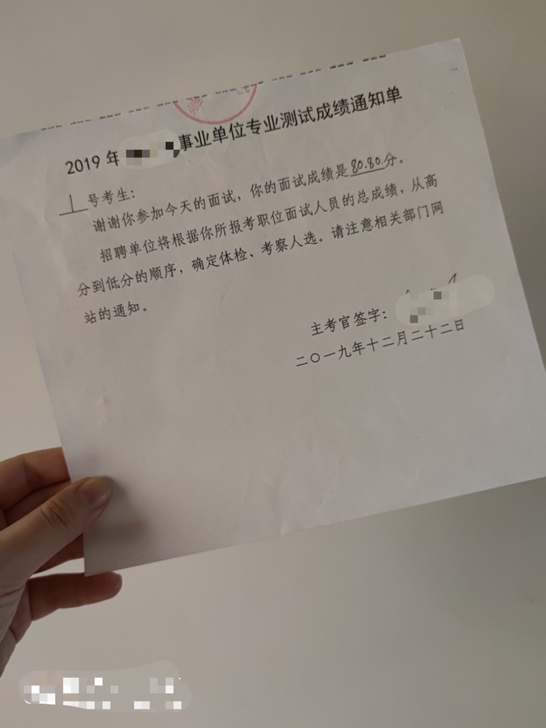 2019 年 事业单位专业测试成绩通知单
1 号考生：
谢谢你参加今天的面试，你的面试成绩是 80.80 分。
招聘单位将根据你所报考职位面试人员的总成绩，从高
分到低分的顺序，确定体检、考察人选。请注意相关部门网
站的通知。
主考官签字：
二〇一九年十二月二十二日